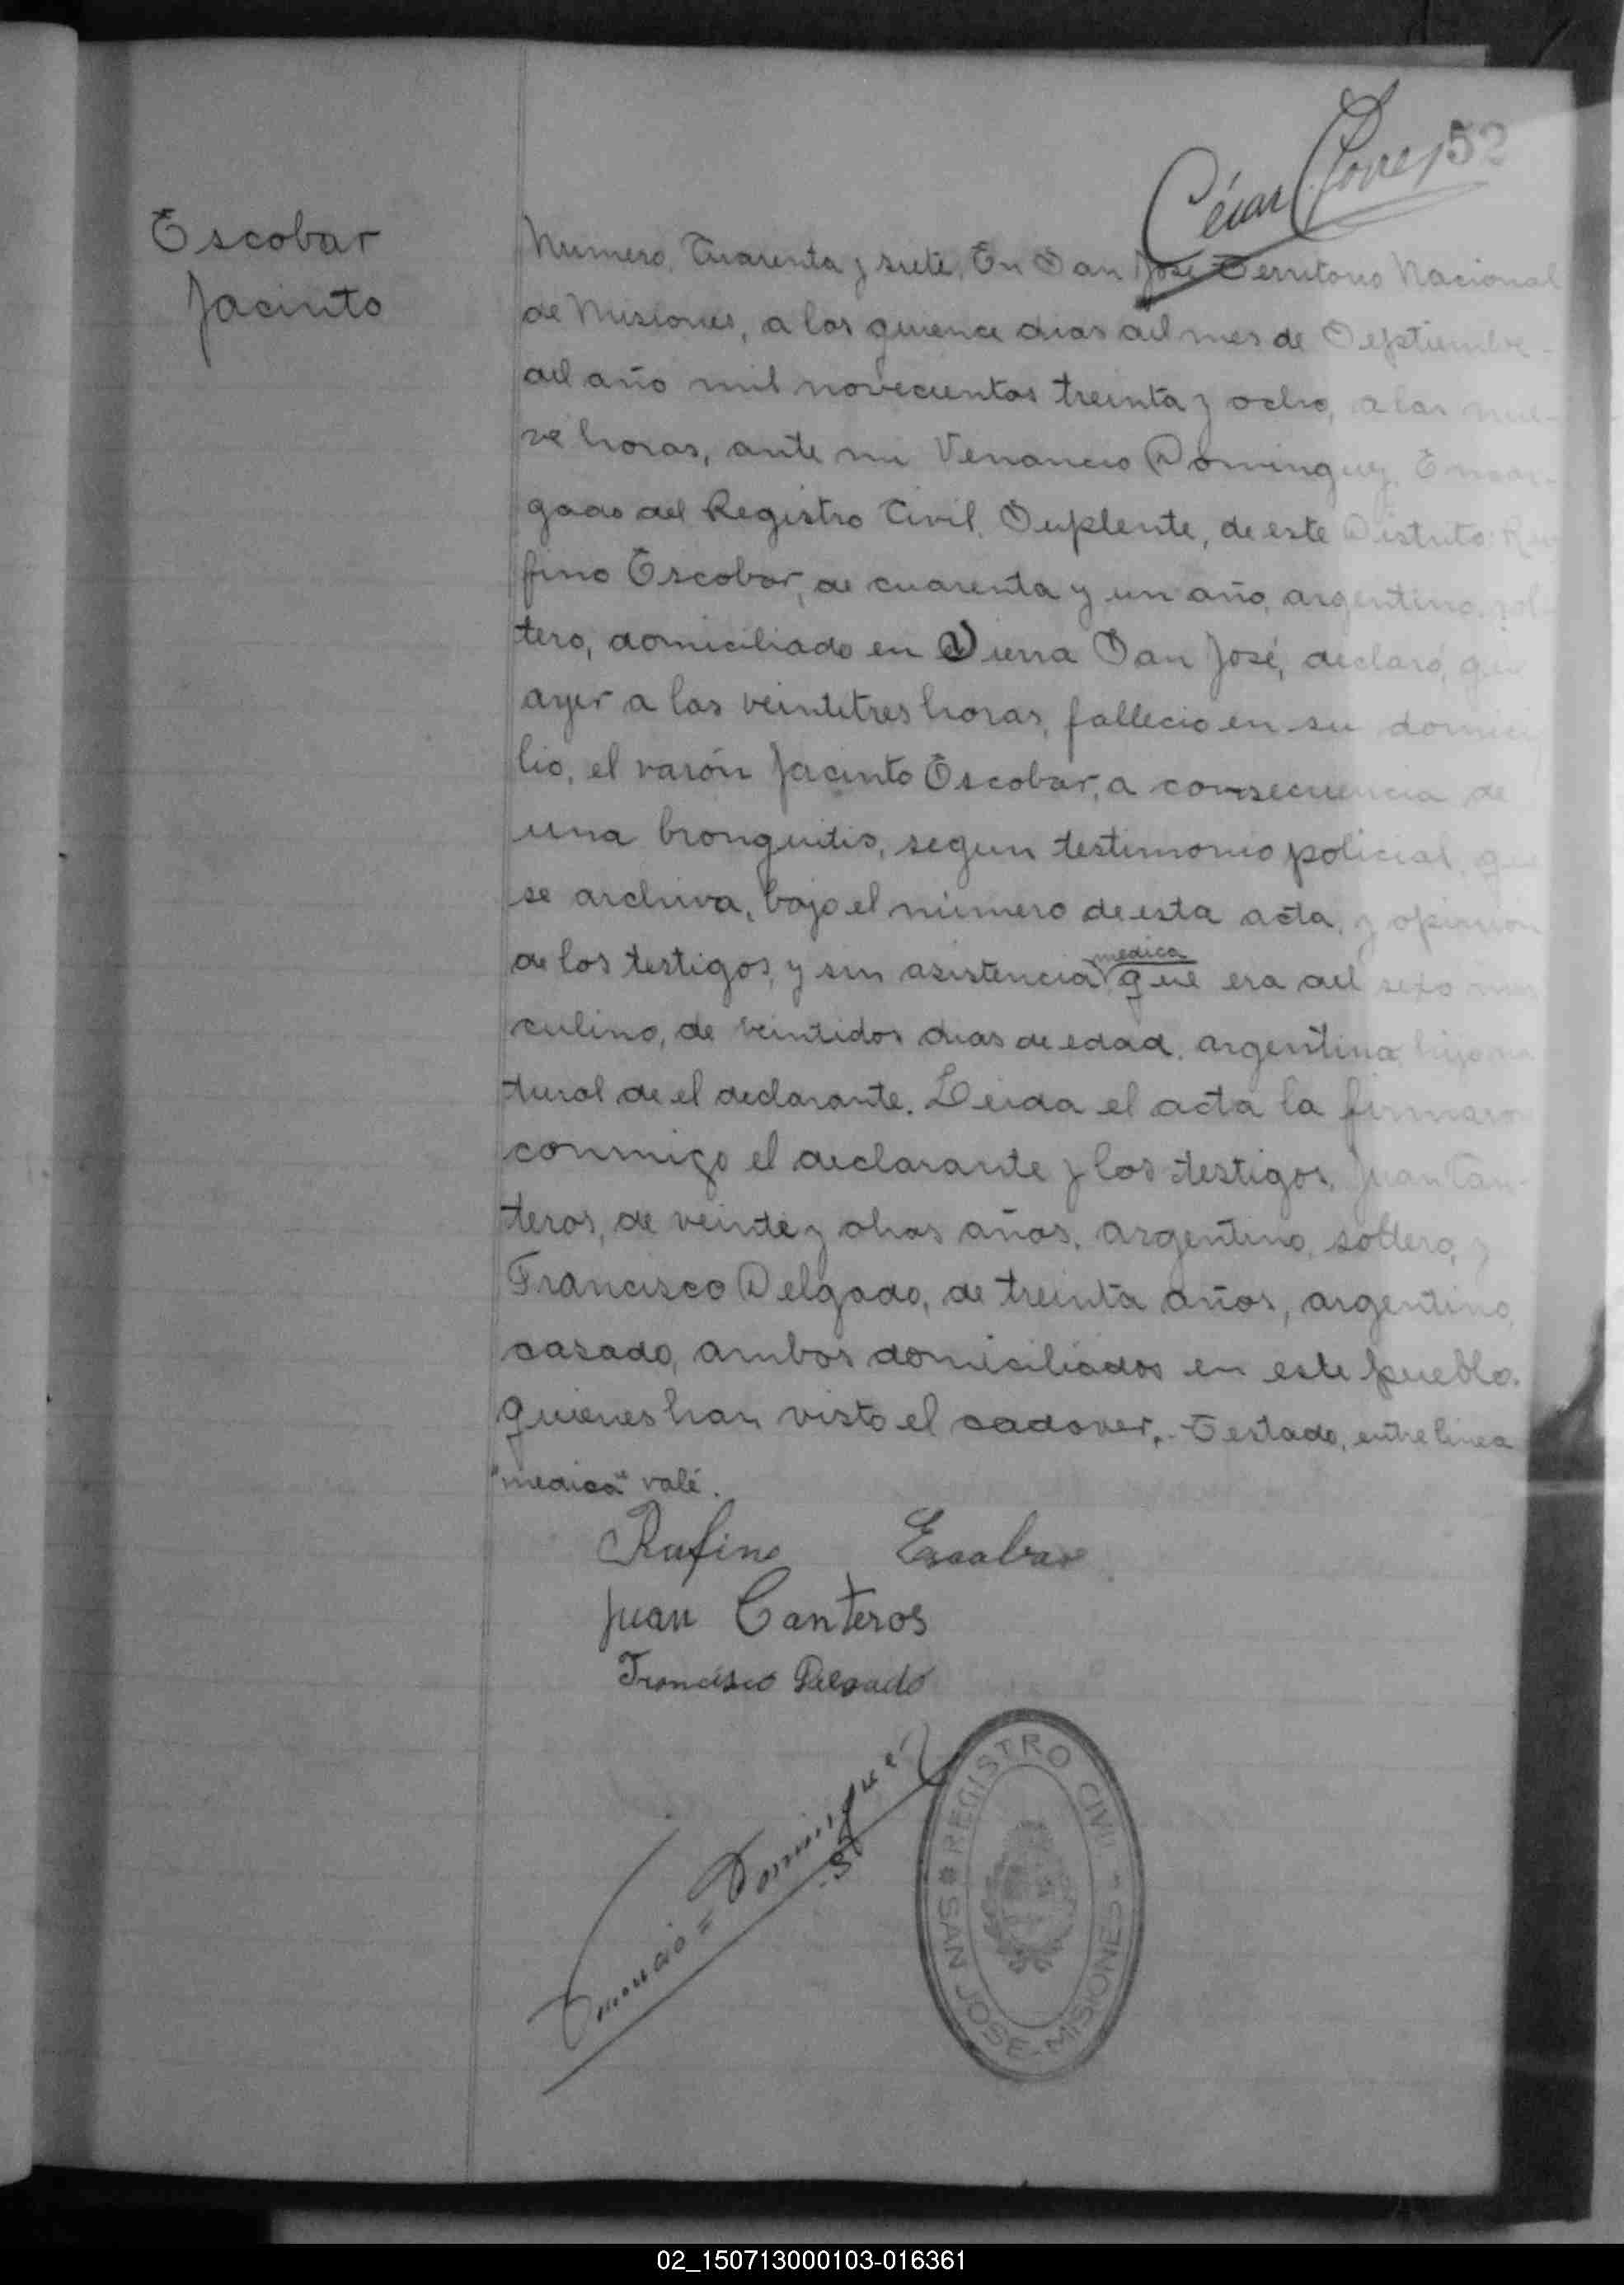 César Torres
52
Escobar
Jacinto
Numero. Cuarenta y siete. En San José Territorio Nacional
de Misiones, a los quience dias del mes de Septiembre
del año mil novecientos treinta y ocho, a las nue-
ve horas, ante mi Venancio Dominguez, Encar-
gado del Registro Civil. Suplente, de este Distrito: Ru-
fino Escobar, de cuarenta y un año, argentino, sol-
tero, domiciliado en Sierra San José, declaró, que
ayer a las veintitres horas, fallecio en su domici
lio, el varón Jacinto Escobar, a consecuencia de
una bronquitis, segun testimonio policial, que
se archiva, bajo el número de esta acta, y opinion
de los testigos, y sin asistencia medica que era del sexo mas
culino, de veintidos dias de edad. argentina hijo na
tural de el declarante. Leida el acta la firmaron
conmigo el declarante y los testigos, Juan Can-
teros, de veinte y ohos años, argentino, soltero, y
Francisco Delgado, de treinta años, argentino,
casado, ambos domiciliados en este pueblo.
quienes han visto el cadaver,. Testado, entre linea
"medica" valé.
Rufino Escobar
Juan Canteros
Francisco Delgado
Venancio = Dominguez
REGISTRO CIVIL - SAN JOSE - MISIONES
02_150713000103-016361